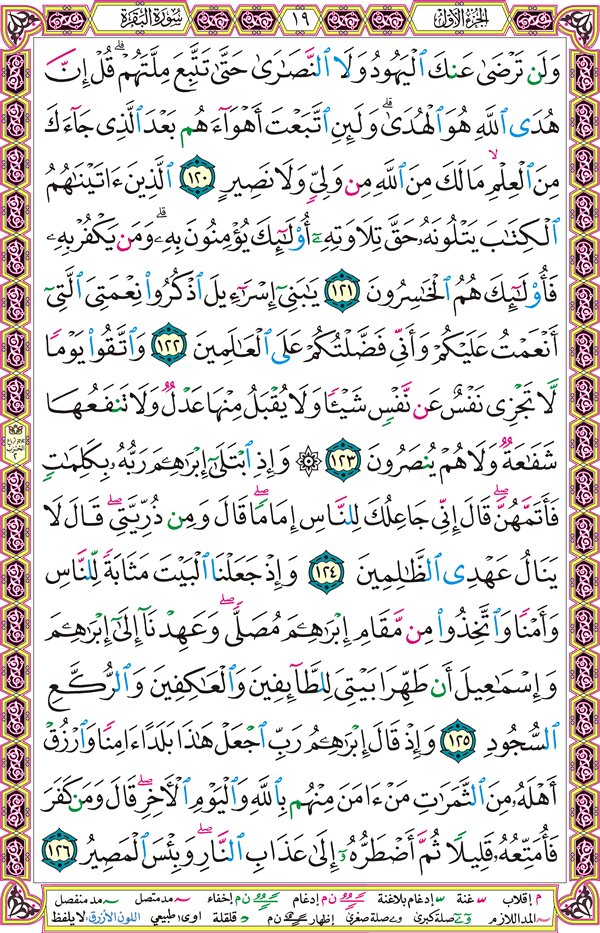 الجزء الأول
١٩
سورة البقرة
وَلَن تَرْضَىٰ عَنكَ ٱلْيَهُودُ وَلَا ٱلنَّصَٰرَىٰ حَتَّىٰ تَتَّبِعَ مِلَّتَهُمْ ۗ قُلْ إِنَّ
هُدَى ٱللَّهِ هُوَ ٱلْهُدَىٰ ۗ وَلَئِنِ ٱتَّبَعْتَ أَهْوَآءَهُم بَعْدَ ٱلَّذِى جَآءَكَ
مِنَ ٱلْعِلْمِ ۙ مَا لَكَ مِنَ ٱللَّهِ مِن وَلِىٍّ وَلَا نَصِيرٍ ١٢٠ ٱلَّذِينَ ءَاتَيْنَٰهُمُ
ٱلْكِتَٰبَ يَتْلُونَهُۥ حَقَّ تِلَاوَتِهِۦٓ أُو۟لَٰٓئِكَ يُؤْمِنُونَ بِهِۦ ۗ وَمَن يَكْفُرْ بِهِۦ
فَأُو۟لَٰٓئِكَ هُمُ ٱلْخَٰسِرُونَ ١٢١ يَٰبَنِىٓ إِسْرَٰٓءِيلَ ٱذْكُرُوا۟ نِعْمَتِىَ ٱلَّتِىٓ
أَنْعَمْتُ عَلَيْكُمْ وَأَنِّى فَضَّلْتُكُمْ عَلَى ٱلْعَٰلَمِينَ ١٢٢ وَٱتَّقُوا۟ يَوْمًا
لَّا تَجْزِى نَفْسٌ عَن نَّفْسٍ شَيْـًٔا وَلَا يُقْبَلُ مِنْهَا عَدْلٌ وَلَا تَنفَعُهَا
شَفَٰعَةٌ وَلَا هُمْ يُنصَرُونَ ١٢٣ ۞ وَإِذِ ٱبْتَلَىٰٓ إِبْرَٰهِۦمَ رَبُّهُۥ بِكَلِمَٰتٍ
فَأَتَمَّهُنَّ ۖ قَالَ إِنِّى جَاعِلُكَ لِلنَّاسِ إِمَامًا ۖ قَالَ وَمِن ذُرِّيَّتِى ۖ قَالَ لَا
يَنَالُ عَهْدِى ٱلظَّٰلِمِينَ ١٢٤ وَإِذْ جَعَلْنَا ٱلْبَيْتَ مَثَابَةً لِّلنَّاسِ
وَأَمْنًا وَٱتَّخِذُوا۟ مِن مَّقَامِ إِبْرَٰهِۦمَ مُصَلًّى ۖ وَعَهِدْنَآ إِلَىٰٓ إِبْرَٰهِۦمَ
وَإِسْمَٰعِيلَ أَن طَهِّرَا بَيْتِىَ لِلطَّآئِفِينَ وَٱلْعَٰكِفِينَ وَٱلرُّكَّعِ
ٱلسُّجُودِ ١٢٥ وَإِذْ قَالَ إِبْرَٰهِۦمُ رَبِّ ٱجْعَلْ هَٰذَا بَلَدًا ءَامِنًا وَٱرْزُقْ
أَهْلَهُۥ مِنَ ٱلثَّمَرَٰتِ مَنْ ءَامَنَ مِنْهُم بِٱللَّهِ وَٱلْيَوْمِ ٱلْءَاخِرِ ۖ قَالَ وَمَن كَفَرَ
فَأُمَتِّعُهُۥ قَلِيلًا ثُمَّ أَضْطَرُّهُۥٓ إِلَىٰ عَذَابِ ٱلنَّارِ ۖ وَبِئْسَ ٱلْمَصِيرُ ١٢٦
م إقلاب غنة إدغام بلاغنة ن م إدغام إخفاء مد متصل مد منفصل
المد اللازم صلة كبرى صلة صغرى إظهار ن م قلقلة اوى؛ طبيعي اللون الأزرق: لا يلفظ